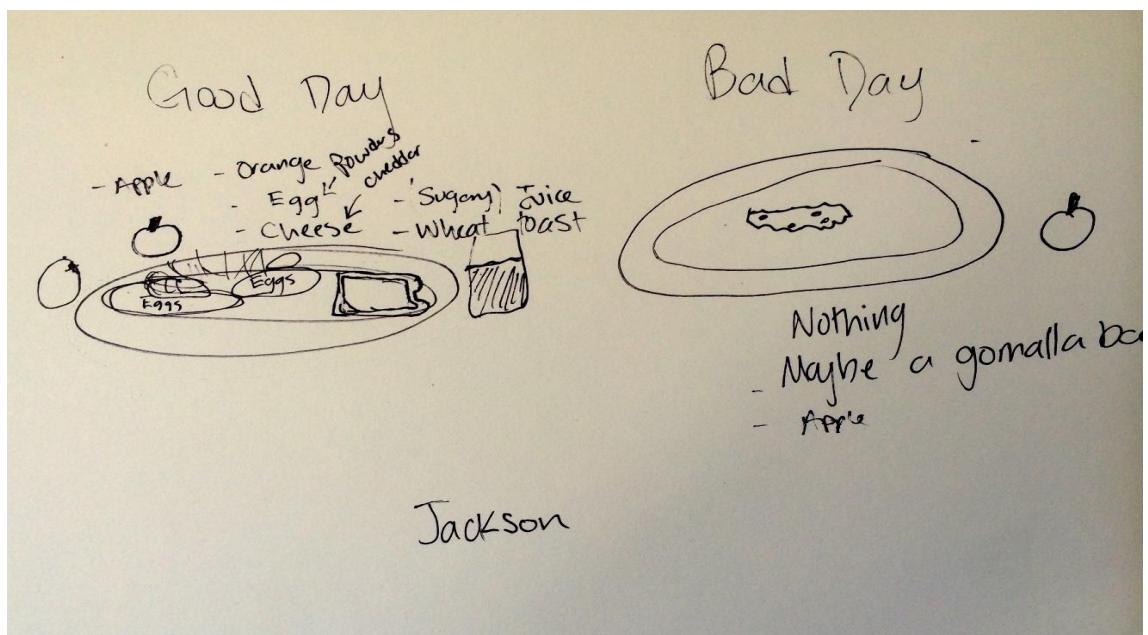 Good Day
- Apple
- Orange
- Egg
Powders
- Cheese
cheddar
- "Sugary" Juice
- Wheat toast
Eggs
Eggs
Bad Day
Nothing
- Maybe a gomalla ba
- Apple
Jackson